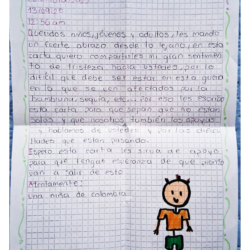 13/09/25
12:50 am
Queridos niños, jóvenes y adultos, les mando
un fuerte abrazo desde lo lejano, en esta
carta quiero compartirles mi gran sentimien
to de tristeza hacia ustedes, por lo
difícil que debe ser estar en esta guerra
en la que se ven afectados por la
hambruna, sequía, etc... Por eso les escribo
esta carta para que sepan que no están
solos y que nosotros también los apoyamos
y hablamos de
ustedes que están pasando.
Espero esta carta les sirva de apoyo
para que tengan esperanza de que pronto
van a salir de esto
Atentamente:
una niña de colombia